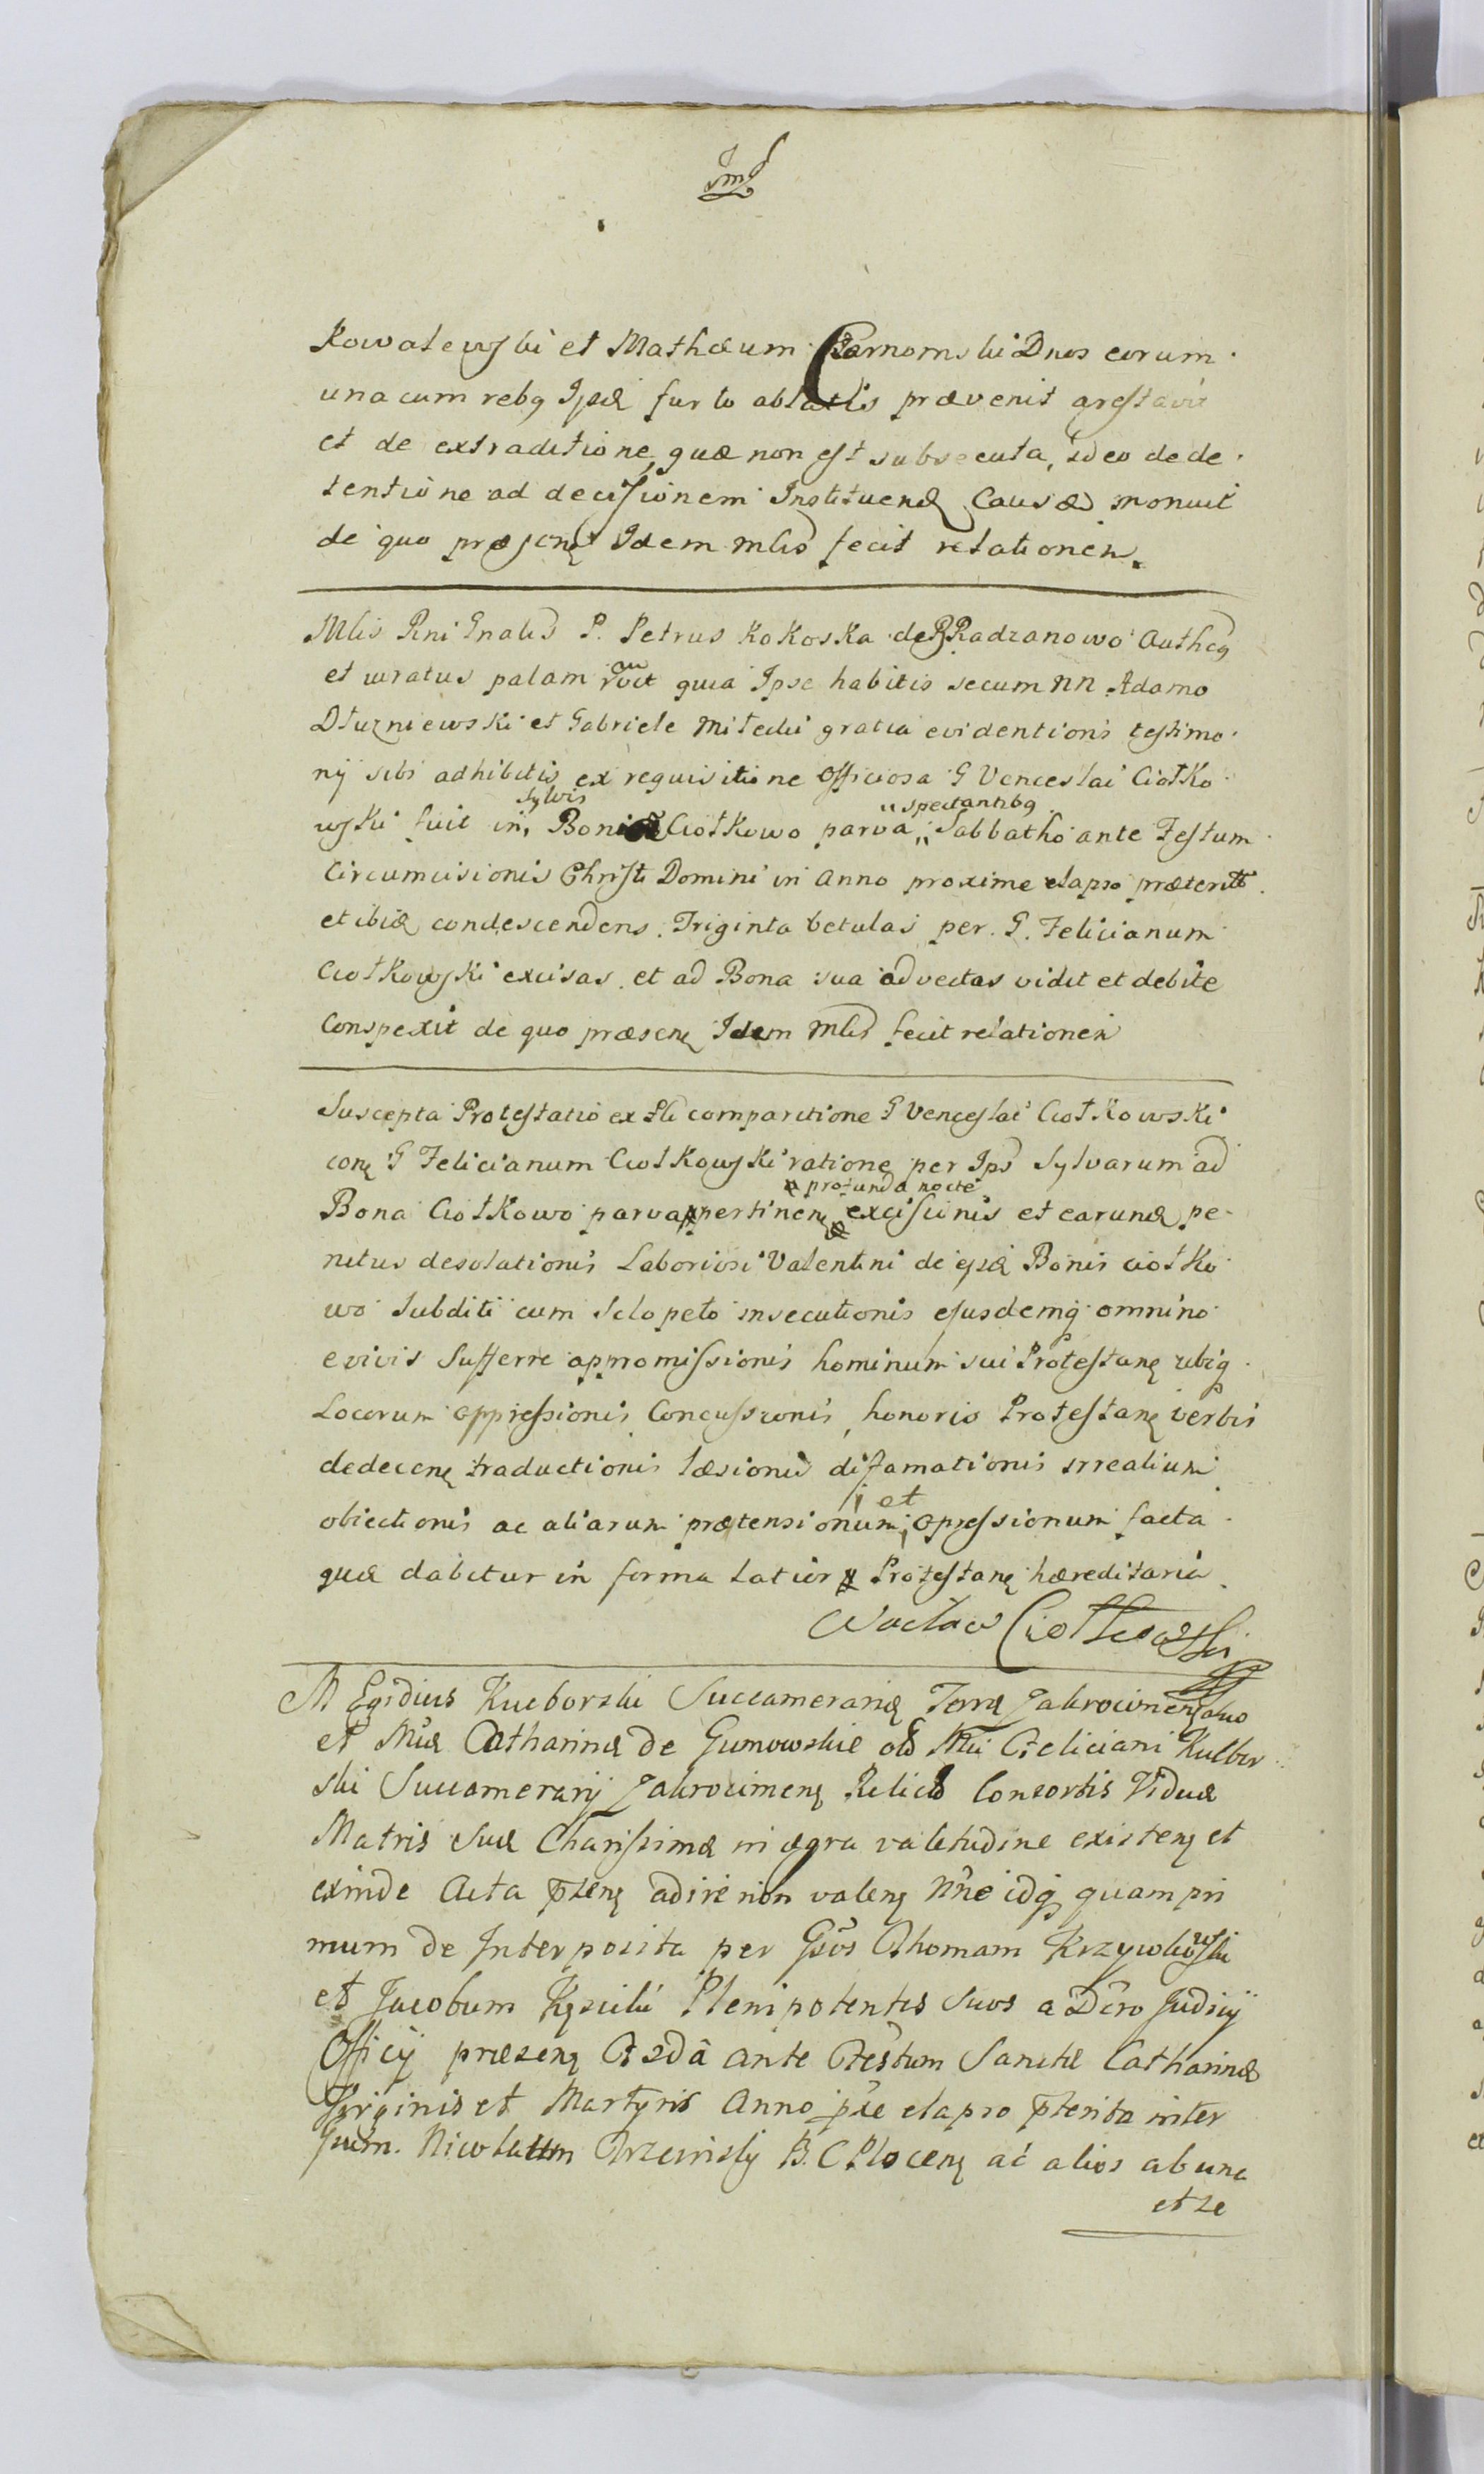 Kowalewski et Mathæum Czarnomski Dnos eorum
una cum rebq Ipsæ furto ablatis prævenit arestavit
et de extraditione, quæ non est subsecuta, ideo de de
tentione ad decisionem Instituenæ Causæ monuit
de quo præsenę Idem mlis fecit relationem.
Mlis Rni Gnalis P. Petrus KoKosKa de Radzanowo Autheq
et iuratus palam quia Ipse habitis secum NN Adamo
DłuzniewsKi et Gabriele Mitecki gratia evidentioris testimo
nij sibi adhibitis ex requisitione Officiosa G Venceslai CiołKo
wski fuit in sylvis Bonis CiołKowo parva spectantibq Sabbatho ante Festum
Circumcisionis Christi Domini in Anno proxime elapso præterito
et ibiæ condescendens Triginta betulas per G. Felicianum
CiołKowski excisas et ad Bona sua advectas vidit et debite
Conspexit de quo præsenę Idem Mlis fecit relationem
Suscepta Protestatio ex comparitione G Venceslai CiołKowsKi
conę G Felicianum CiołKowsKi ratione per Ips Sylvarum ad
Bona CiołKowo parva pertinenę profunda nocte excisionis et earunæ pe
nitus desolationis Laboriosi Valentini de ijsæ Bonis ciołKo
wo Subditi cum Sclopeto insecutionis ejusdemq omnino
e vivis Sufferre appromissionis hominum sui Protestanę ubiq
Locorum oppressionis Concussionis, honoris Protestanę verbis
dedecenę traductionis læsionis difamationis irrealium
obiectionis ac aliarum prætensionum et opressionum facta
quæ dabitur in forma latiori Protestanę hæreditaria
Wacław Ciołkowski
M Egidius Kucborski Succameraria Terræ Zakrocimenę suo
et Mæ Catharinæ de Gumowskie olæ Mci Feliciani Kucbor
ski Succamerarij Zakrocimenę Relictæ Consortis Viduæ
Matris Suæ Charissimæ in ægra valetudine existenę et
exinde Acta pntenę adire non valenę Nne idq quam pri
mum de Interposita per Gsos Thomam Krzywkowski
et Jacobum Plenipotentes Suos a Dcro Judicij
Officij præsenę Fæda ante Festum Sanctæ Catharinæ
Virginis et Martyris Anno pxe elapso pterito inter
Nicolaum B. C Plocenę ac alios ab una
et ze